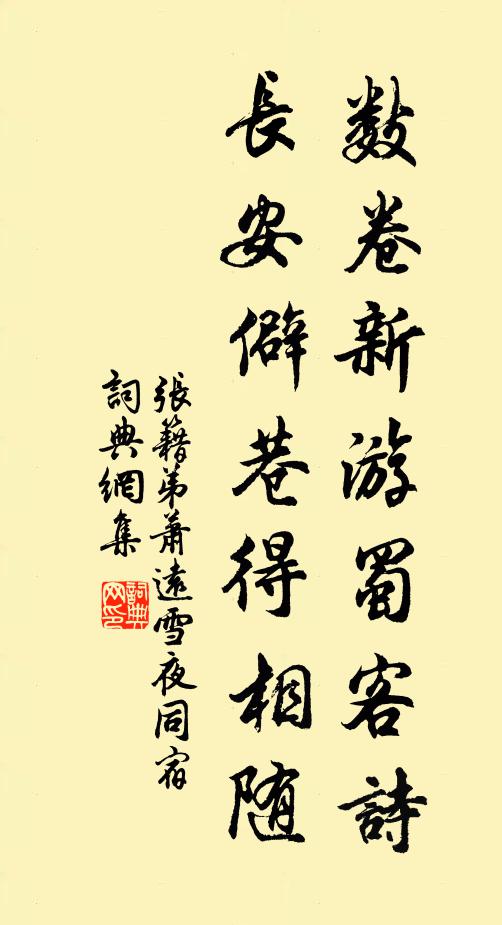 数卷新游蜀客詩
長安僻巷得相随
張籍弟蕭遠雪夜同宿
詞典網集
詞典网印